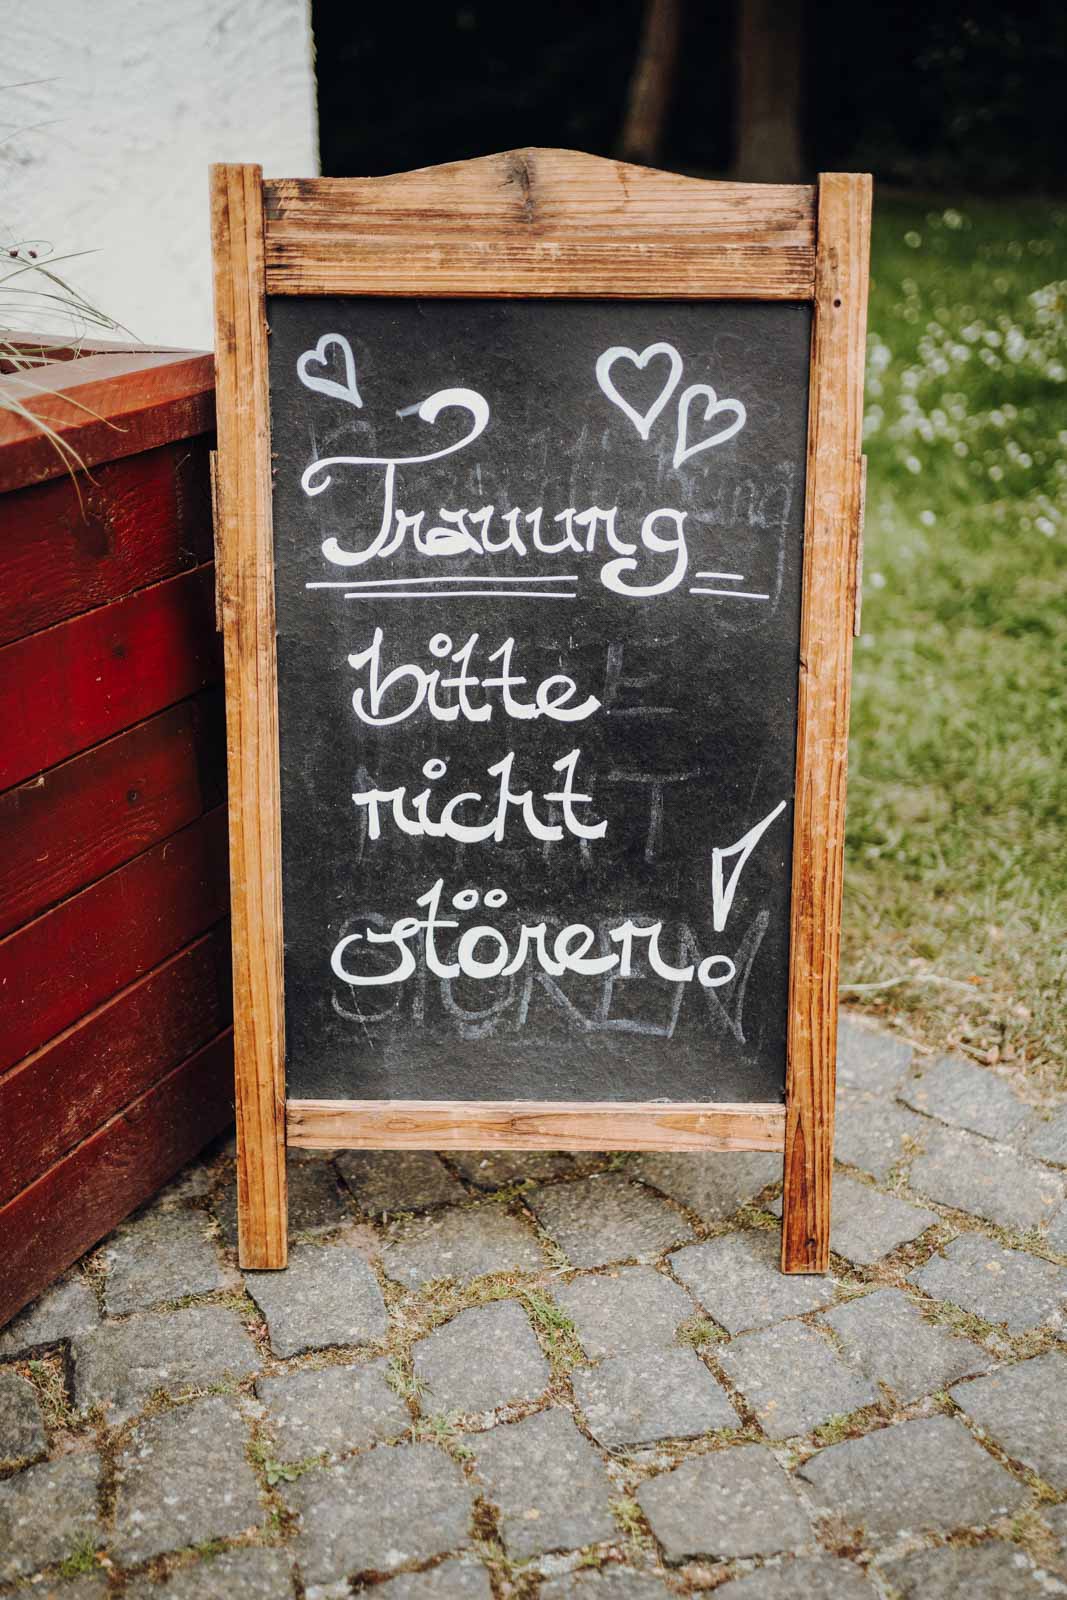 Trauung
bitte
nicht
stören!
STÖREN